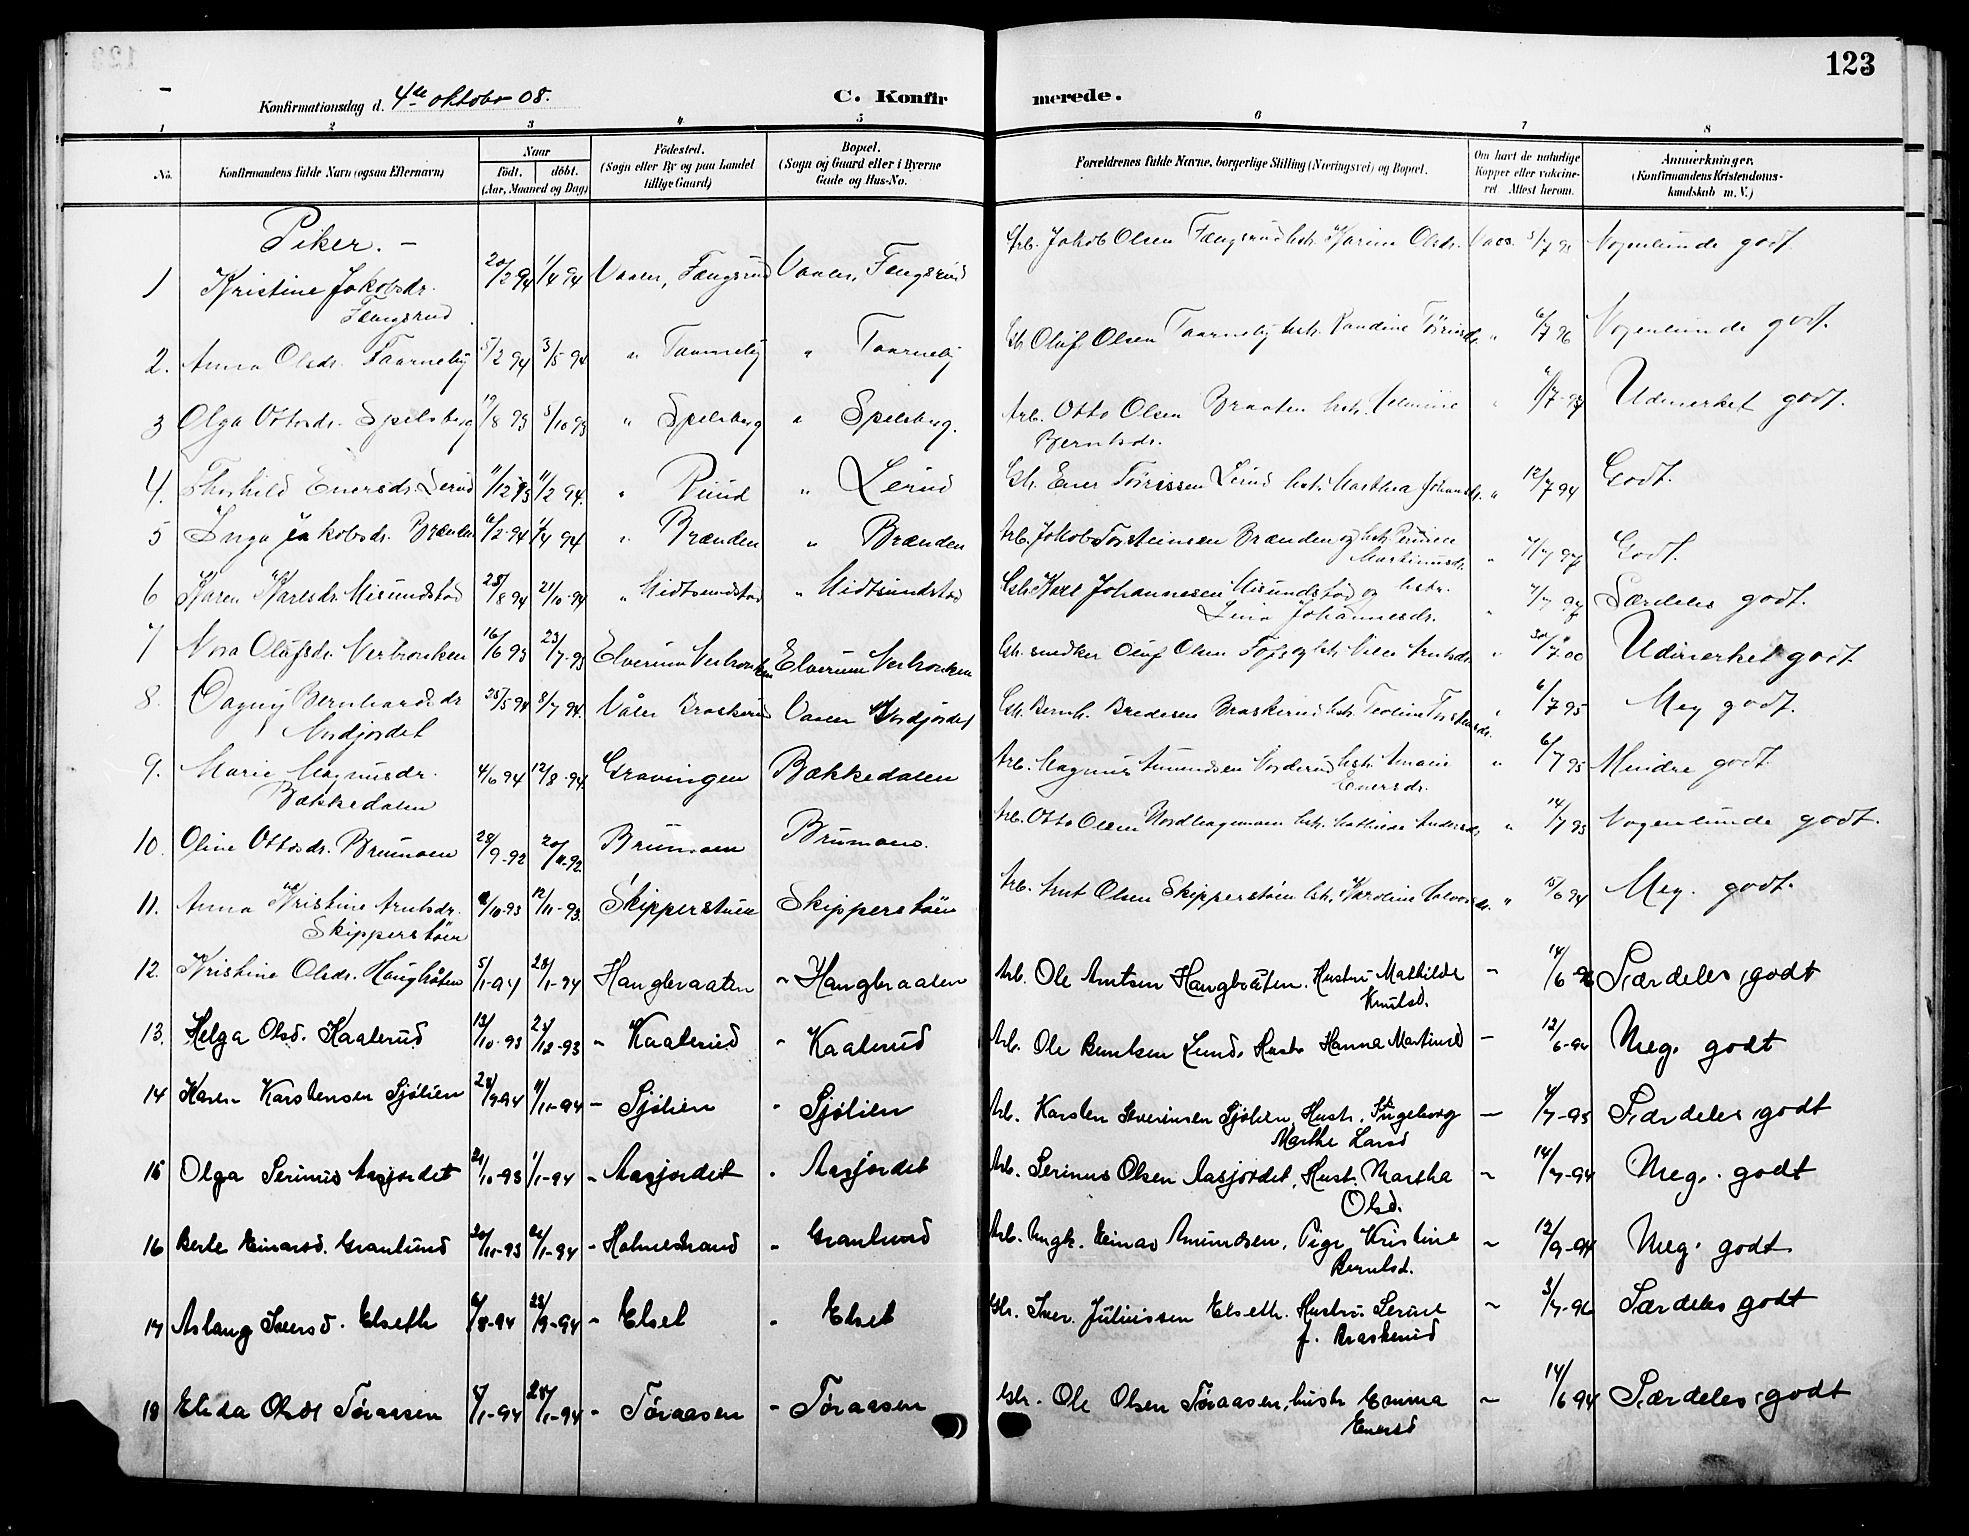 123
Konfirmationsdag d. 4de oktober 08.
C. Konfirmerede.
1 2 3 4 5 6 7 8
No.
Konfirmandens fulde Navn (ogsaa Efternavn)
Naar
födt. döbt.
(Aar, Maaned og Dag)
Födested.
(Sogn eller By og paa Landet
tillige Gaard)
Bopæl.
(Sogn og Gaard eller i Byerne
Gade og Hus-No.
Forældrenes fulde Navne, borgerlige Stilling (Næringsvei) og Bopæl.
Om havt de naturlige
Kopper eller vakcine-
ret Attest herom.
Anmærkninger.
(Konfirmandens Kristendoms-
kundskab m. V.)
Piker. -
1 Kristine Jakobsdr. 20/2 94 1/4 94 Vaaler, Fængsrud Vaaler, Fængsrud Arb. Jakob Olsen Fængsrud hstr. Karine Olsdr. Vacc. Nogenlunde godt
Fængsrud
2. Anna Olsdr. Taarneby 5/2 94 3/5 94 " Taarneby " Taarneby Oluf Olsen Taarneby hstr. Randine " 6/7 96 Nogenlunde godt.
3 Olga Ottosdr. Spelsberg 19/8 93 5/10 93 " Spelsberg " Spelsberg. Arb. Otto Olsen Braaten hstr. " Udmerket godt.
Berntsdr.
4. Thorhild Enersdr. Lerud 11/12 93 11/2 94. " " Lerud Ener Lerud hstr. Marthea Johansdr. " 12/7 94 Godt.
5 Inga Jakobsdr. Brænden 6/2-94 1/4 94 " Brænden " Brænden Arb. Jakob Torsteinsen Brænden og hstr.
Martinusdr. " Godt.
6 Karen Karlsdr. Misundstad 28/8 94 21/10-94 " Midtsundstad " Midtsundstad Karl Johannesen Misundstad og hstr.
Lina Johannesdr. " Særdeles godt.
7 Nora Olufsdr. Verbrenken 16/6 93 23/7-93 Elverum Elverum smedker Oluf Olsen hstr. " Udmerket godt.
8. Dagny Bernhardsdr 25/5 94 8/7 94. Våler Braskerud Vaaler Nordjordet Bernh. Bredesen Braskerud hstr. " 6/7 95 Meg godt.
Nordjordet
9. Marie Magnusdr. 4/6 94 12/8-94. Gravingen Bækkedalen Arb. Magnus Amundsen Norderud hstr. " 6/7 95 Mindre godt.
Bækkedalen Enersdr.
10. Oline Ottosdr. Brumoen 28/9-92 20/11-92. Brumoen Brumoen. Arb. Otto Olsen Nordhagemoen hstr. Mathilde Andersdr " 14/7 93 Nogenlunde godt.
11. Anna Kristine Arntsdr. /10-93 12/11-93. Skipperstuen Skipperstöen Arb. Arnt Olsen Skipperstöen hstr. Karoline " /6 94 Meg. godt.
Skipperstöen
12. Kristine Olsdr. Haugbråten 5/1-94 28/1-94 Haugbraaten - Haugbraaten Arb. Ole Arntsen Haugbråten. Hustru Mathilde - 14/6- Særdeles godt
Knutsd.
13. Helga Olsd. Kaaterud 13/10-93 /12-93 - Kaaterud - Kaaterud Arb. Ole Berntsen Lund. Hustr Hanna Martinsd - 12/6-94 Meg. godt
14 Karen Karstensen Sjölien 2/9-94 11/11-94 - Sjölien - Sjölien Arb. Karsten Severinsen Sjölien, Hustr. Ingeborg - /7-95 Særdeles godt
Marthe Larsd
15 Olga Serinus Aasjordet 21/10-93 1/1-94 - Aasjordet - Aasjordet Arb. Serinus Olsen Aasjordet, Hustr. Martha - 14/7-94 Meg. godt
Olsd.
16 Berte Einarsd. Granlund 20/11-93 /1-94 - Holmestrand - Granlund Arb. Ungk. Einar Amundsen, Pige Kristine - 12/9-94 Meg. godt
Berntsd.
17 Aslaug Iversd. Elseth 6/8-94 23/9-94 - Elset - Elset Iver Juliussen Elseth. Hustru Serine - 3/7-96 Særdeles godt
f. Braskerud
18 Elida Olsdr Töraasen /1-94 28/1-94 - Töraasen - Töraasen Ole Olsen Töraasen, hustr Emma - 14/6 94 Særdeles godt
Enersd